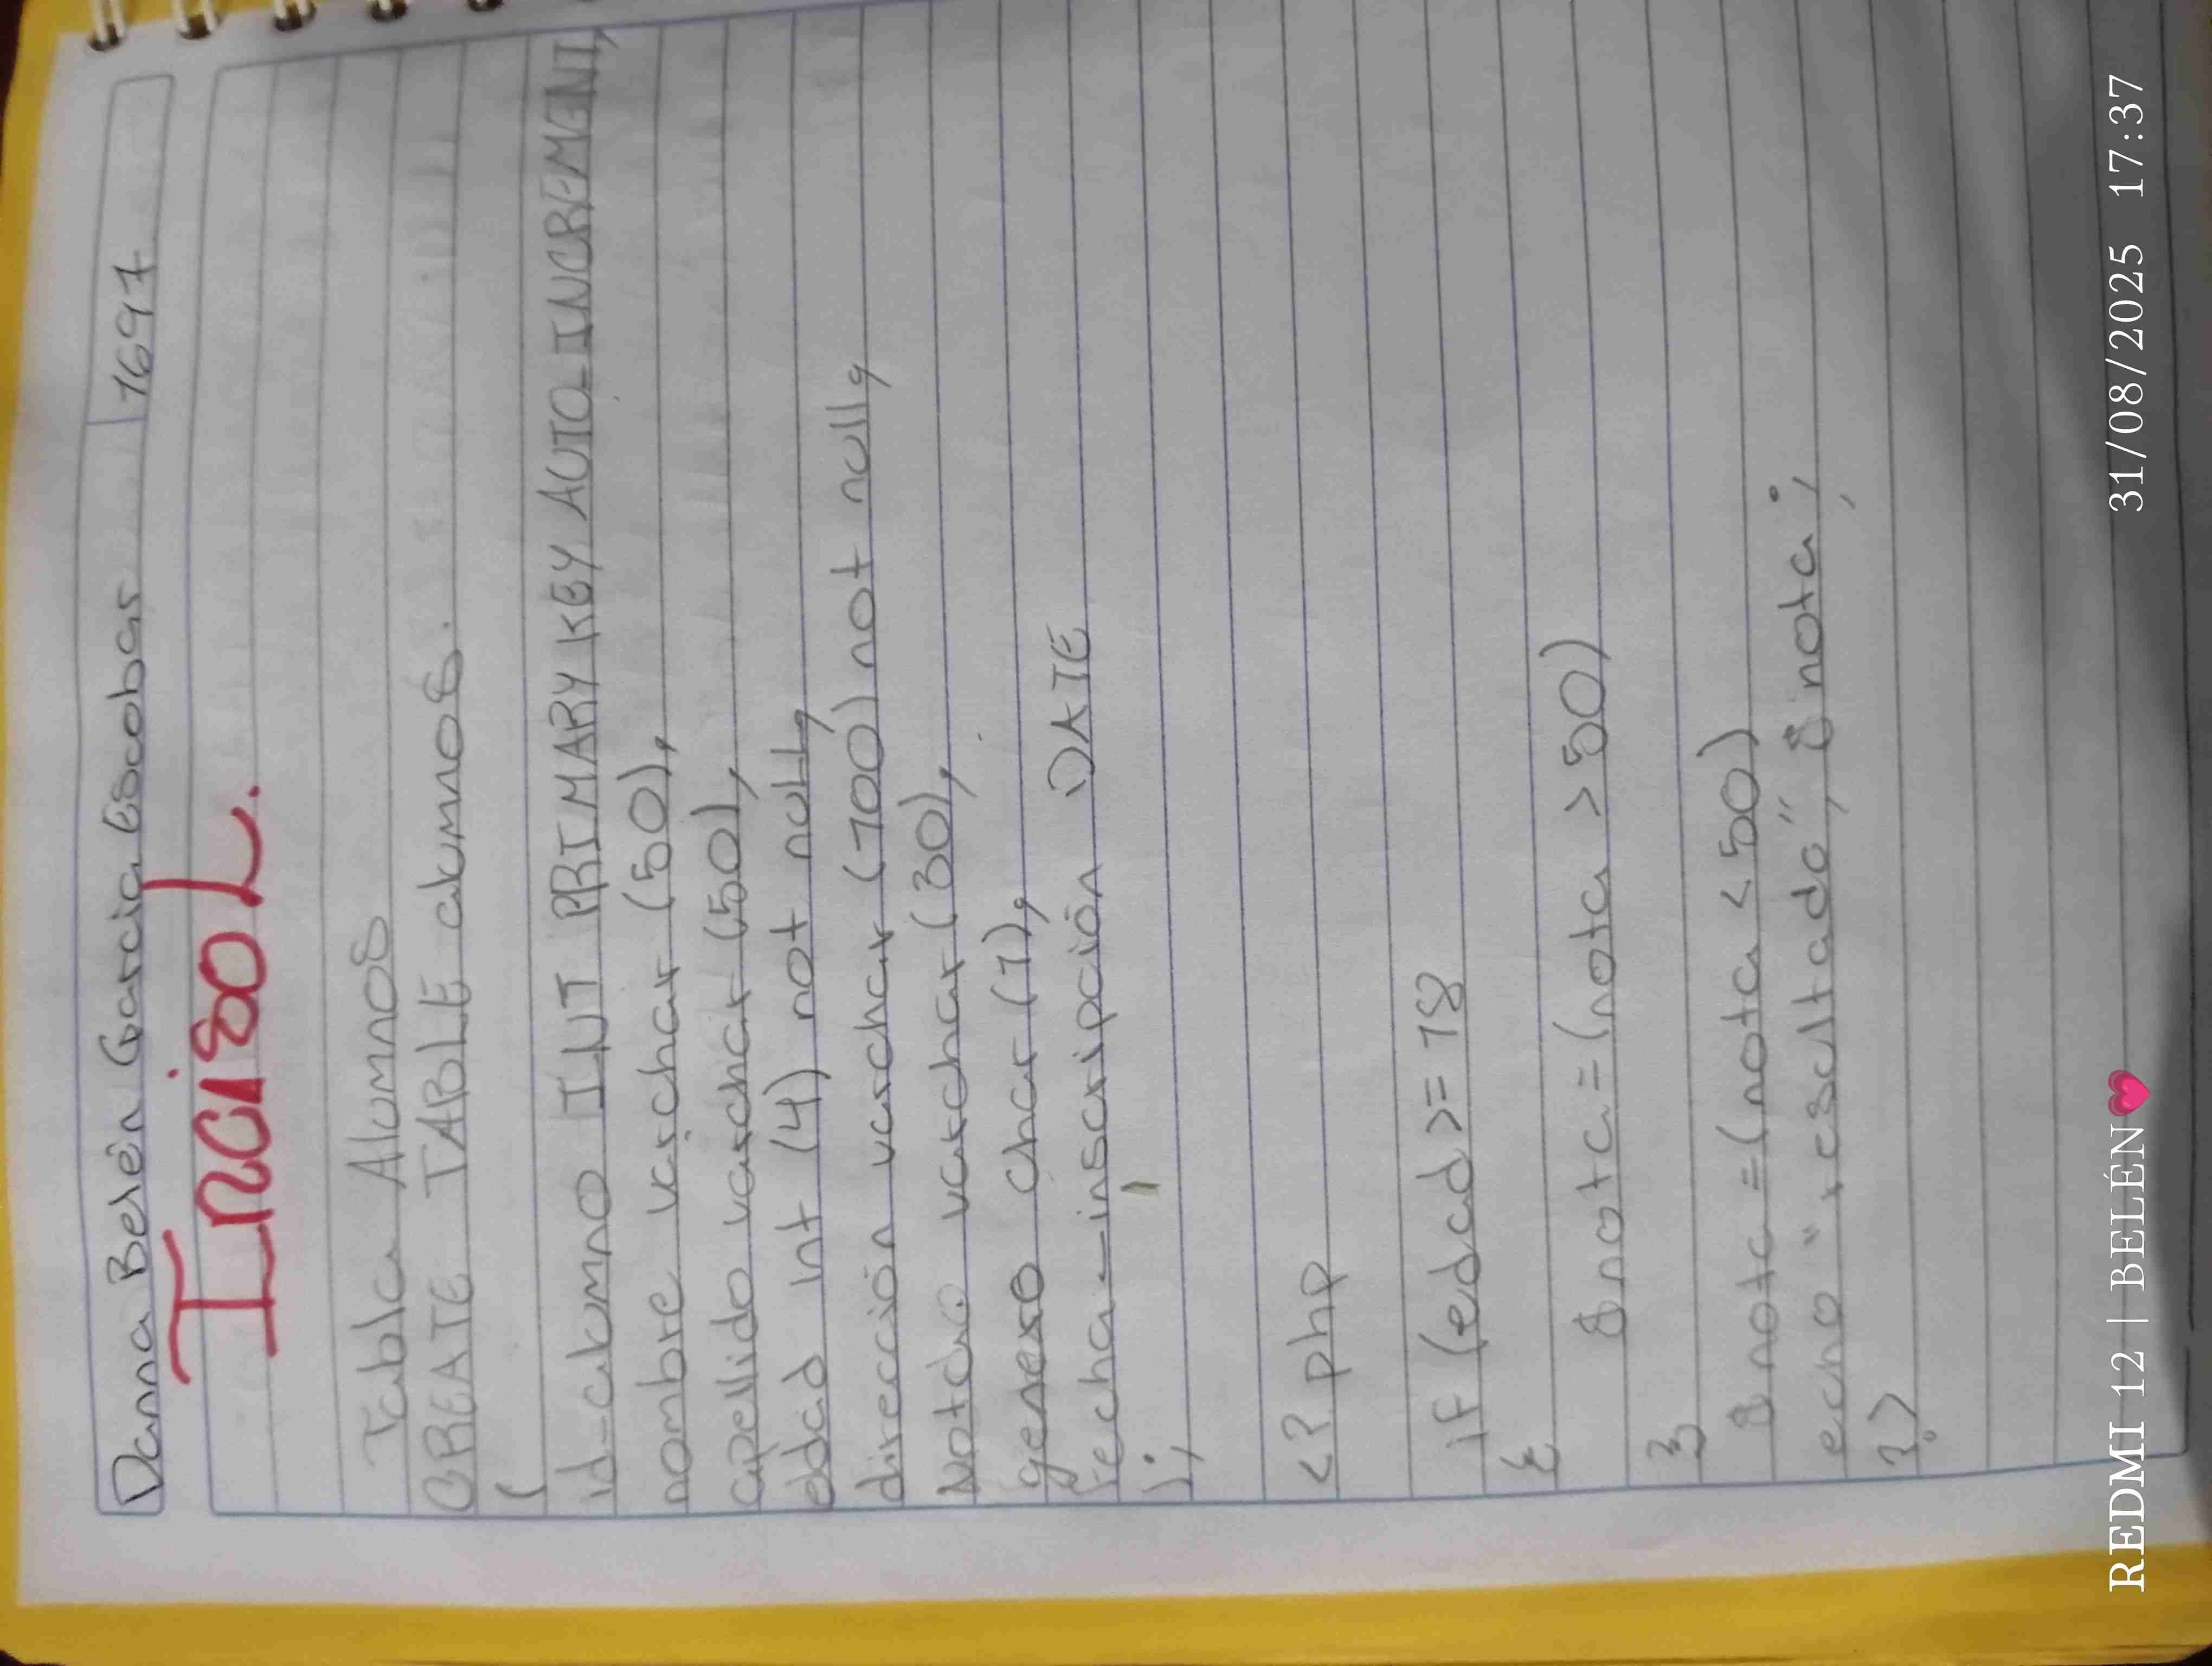 Danna Belén Garcia Escobar 1697
Inciso L.
Tabla Alumnos
CREATE TABLE alumnos.
(
id-alumno INT PRIMARY KEY AUTO_INCREMENT,
nombre varchar (50),
apellido varchar (50),
edad int (4) not null,
dirección varchar (100) not null,
Notas varchar (30),
genero char (1),
fecha-inscripción DATE
);
<? php
if (edad >= 18
{
$nota = (nota > 50)
}
$nota = (nota < 50)
echo "resultado", $nota;
?>
REDMI 12 | BELÉN💗
31/08/2025 17:37